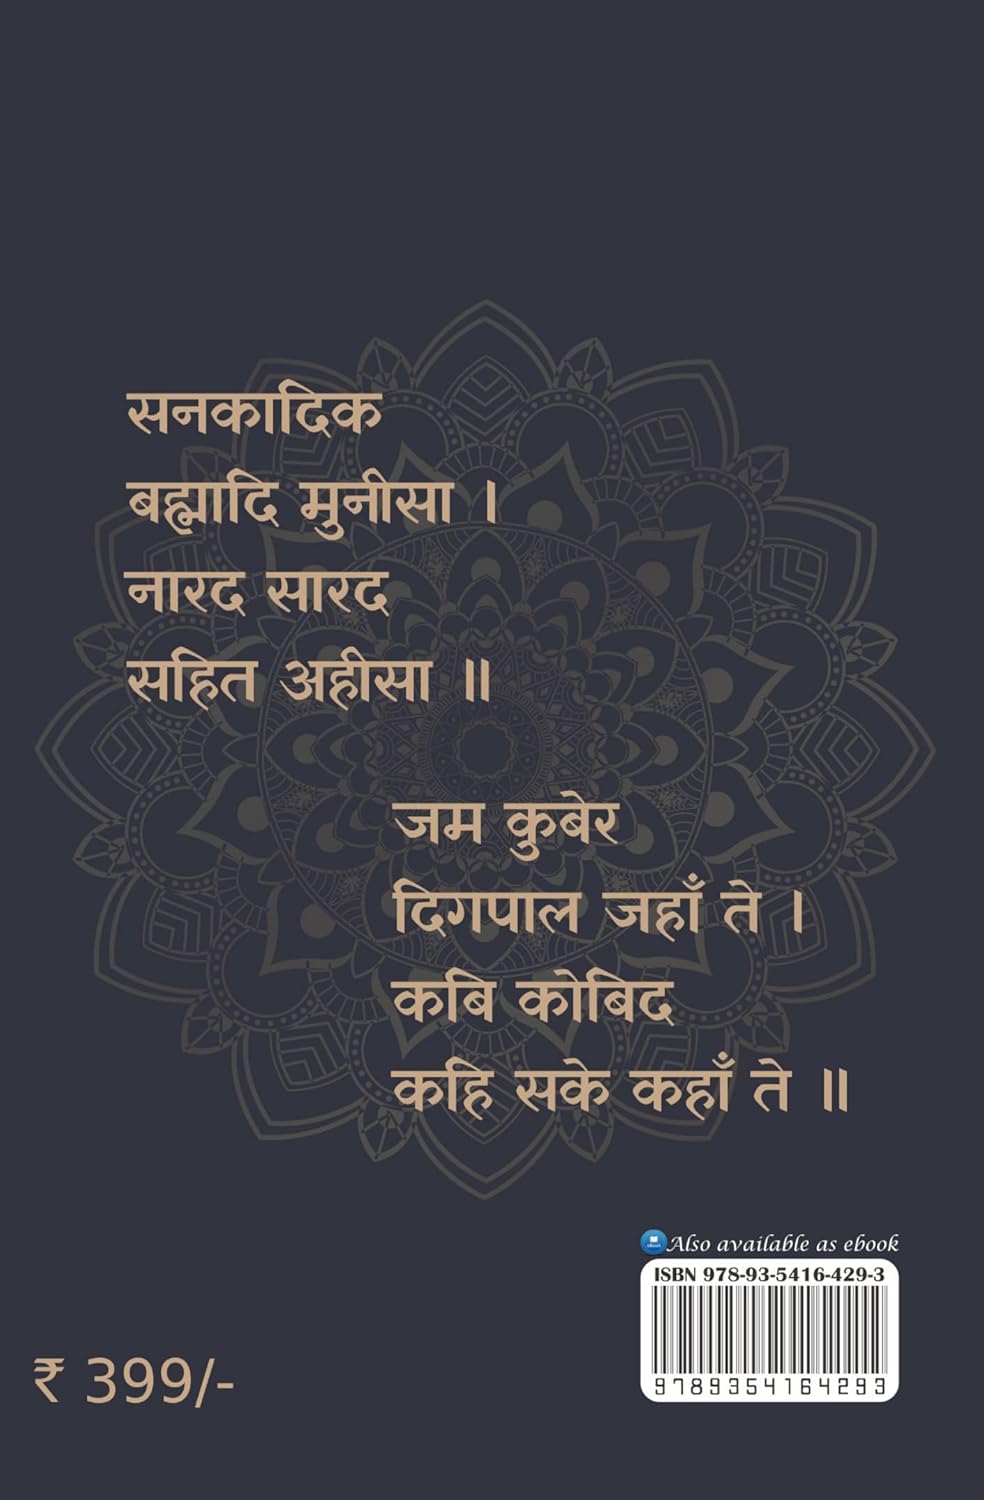 सनकादिक
बह्मादि मुनीसा ।
नारद सारद
सहित अहीसा ॥
जम कुबेर
दिगपाल जहाँ ते ।
कबि कोबिद
कहि सके कहाँ ते ॥
Also available as ebook
ISBN 978-93-5416-429-3
9789354164293
₹ 399/-